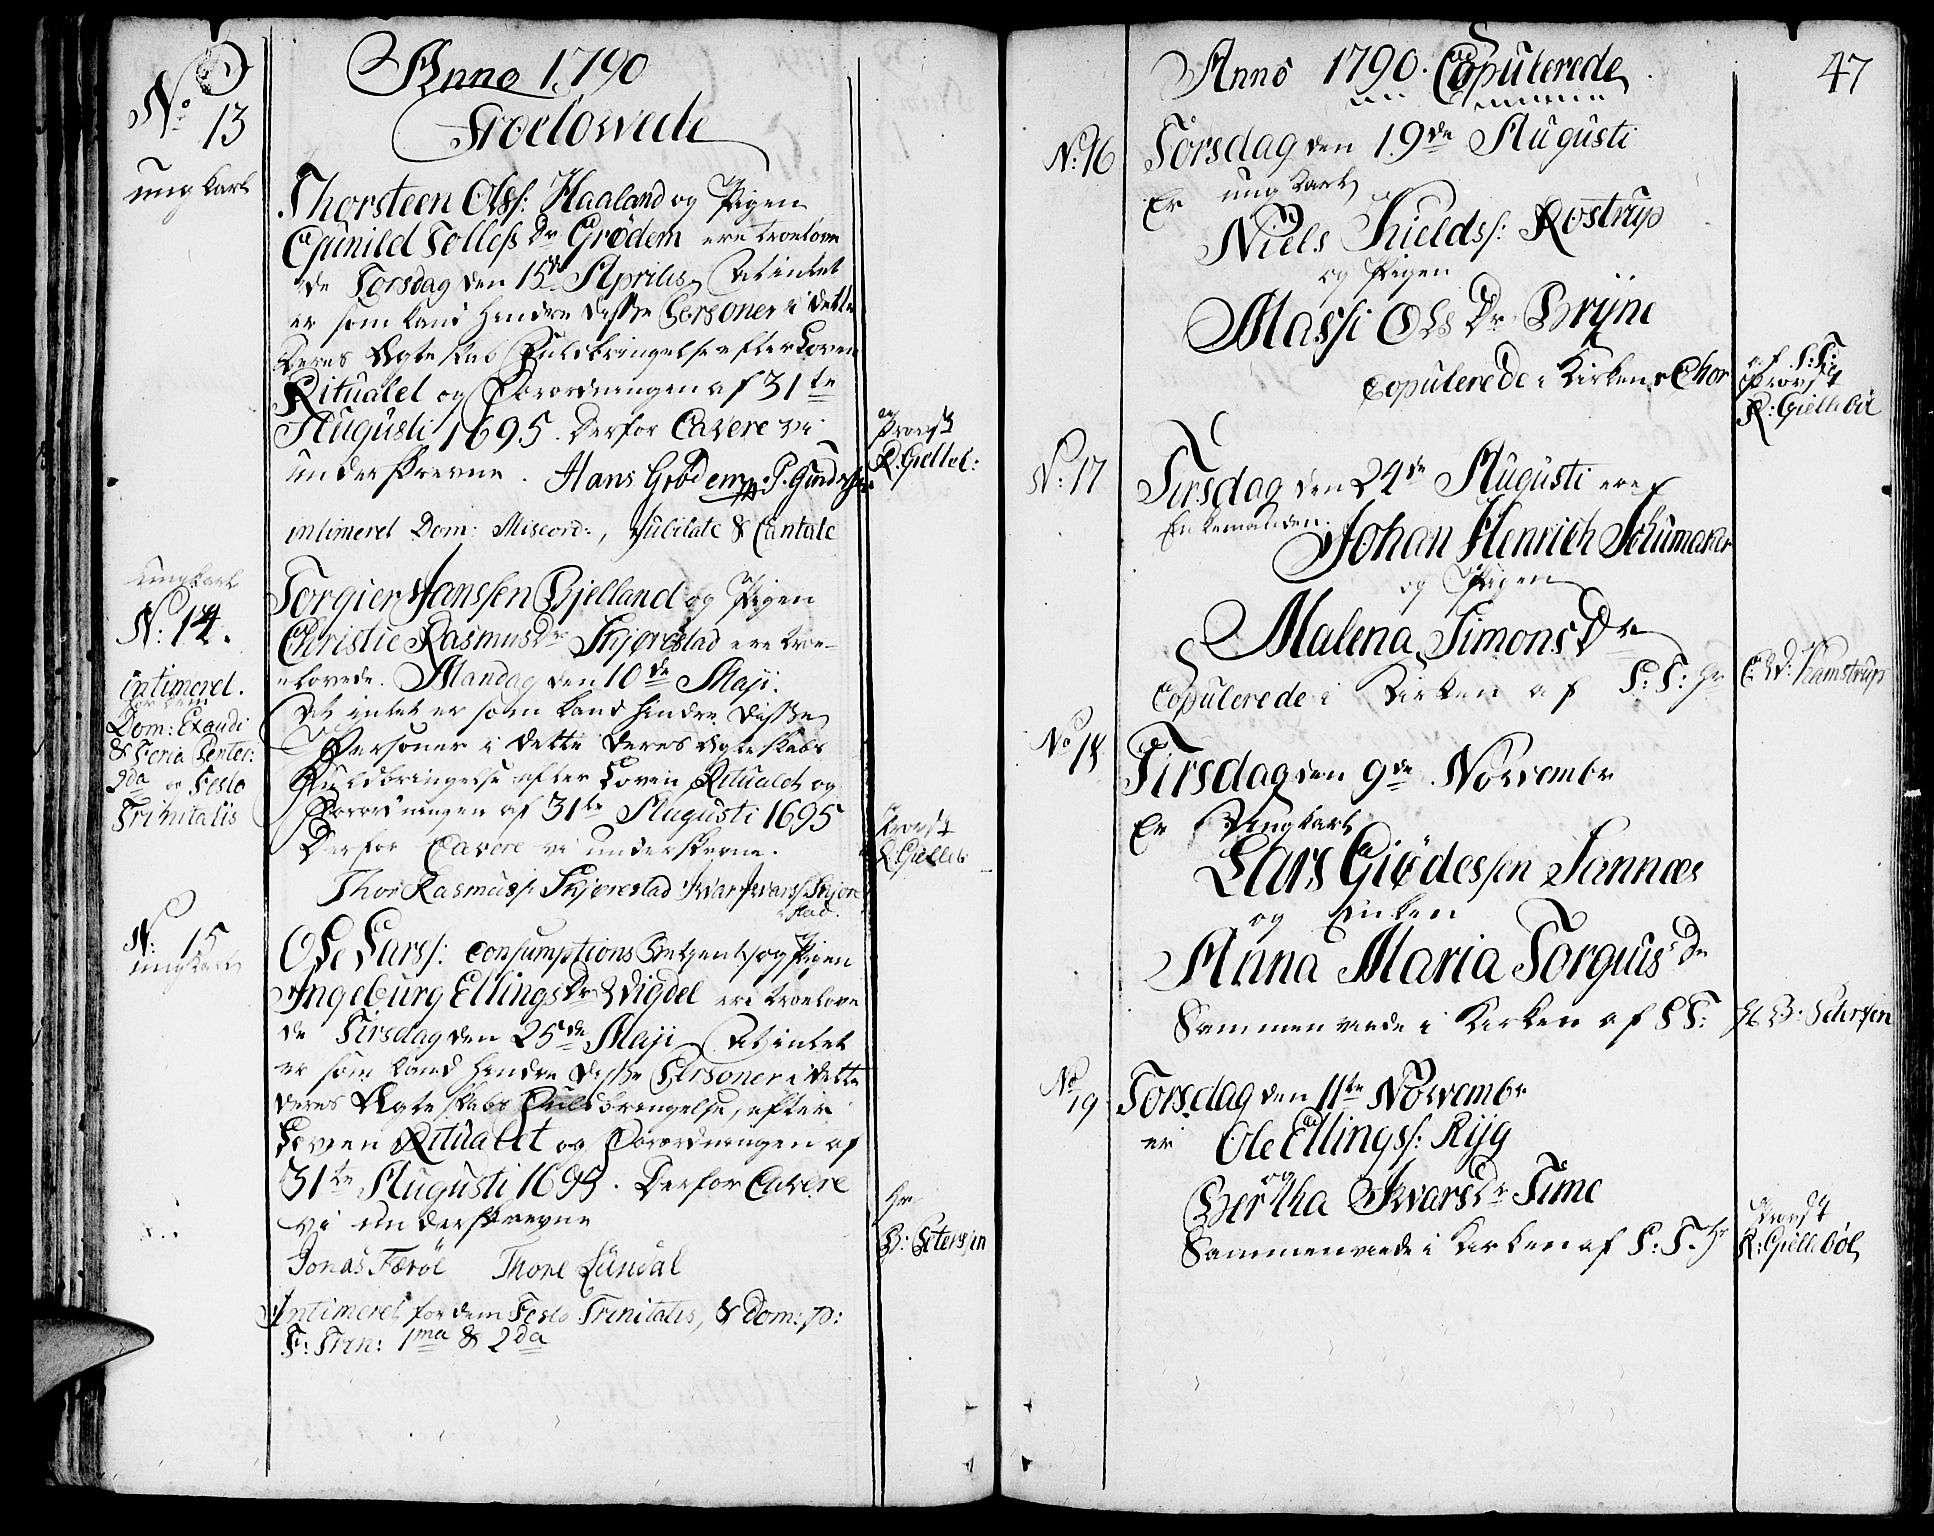 No
13
ungkarl
Anno 1790
Troelowede
Thorsteen Olss: Haaland og Pigen
Gunild Tolless Dr Grødem ere troelove
de Torsdag den 15de Aprilis, At intet
er som kand hindre disse Personer i dette
Deres Ægteskab Fuldbringelse efter Loven
Ritualet og Forordningen af 31te
Augusti 1695. Derfor Cavere vi
underskrevne. Hans Grødem
intimeret Dom: Miscord:, Jubilate & Cantate
Provst
R: Giellel:
ungkarl
N: 14.
intimeret.
for dem
Dom: Exaudi
& Feria Pentec:
2da og Festo
Trinitatis
Torgier Hanssen Bjelland og Pigen
Christie Rasmus Dr Skjørestad ere troe-
lovede. Mandag den 10de Maji.
At intet er som kand hindre disse
Personer i dette deres Ægteskabs
Fuldbringelse efter Loven Ritualet og
Forordningen af 31te Augusti 1695
Derfor Cavere vi underskrevne.
Thor Rasmuss: Skjørestad Ivar Ivarss: Skjøre
stad.
Provst
R: Gielleb
N: 15
ungkarl
Ole Larss: Consumptions Betient, og Pigen
Ingeburg Ellings Dr Wigdel ere troelove
de Tirsdag den 25de Maji At intet
er som kand hindre disse Personer i dette
deres Ægteskabs Fuldbringelse, efter
Loven Ritualet og Forordningen af
31te Augusti 1695. Derfor Cavere
vi underskrevne
Jonas Færöe Thore Lundal
Intimeret for dem Festo Trinitatis, & Dom: p:
F: Trin: 1ma & 2da
Hr
B: Petersen
47
Anno 1790. Copulerede
No: 16
Torsdag den 19de Augusti
Er ungkarl
Niels Kieldss: Rostrup
og Pigen
Massi Ols Dr Bryne
Copulerede i Kirkens Chor
af S: T:
Provst
R: Giellebøl
N: 17
Tirsdag den 24de Augusti ere
Enkemanden
Johan Henrich Schumaker
og Pigen
Malena Simons Dr
Copulerede i Kirken af S: T: Hr
C: W: Kamstrup
No 18
Tirsdag den 9de Novembr
Er Ungkarl
Lars Giødessen Sannæs
og Enken
Anna Maria Torgius Dr
Sammenviede i Kirken af S T:
Hr B: Petersen
No 19
Torsdag den 11te Novembr
er Ole Ellingss: Ryg
og
Bertha Ivars Dr Time
Sammenviede i Kirken af S: T. Hr
Provst
R: Giellebøl